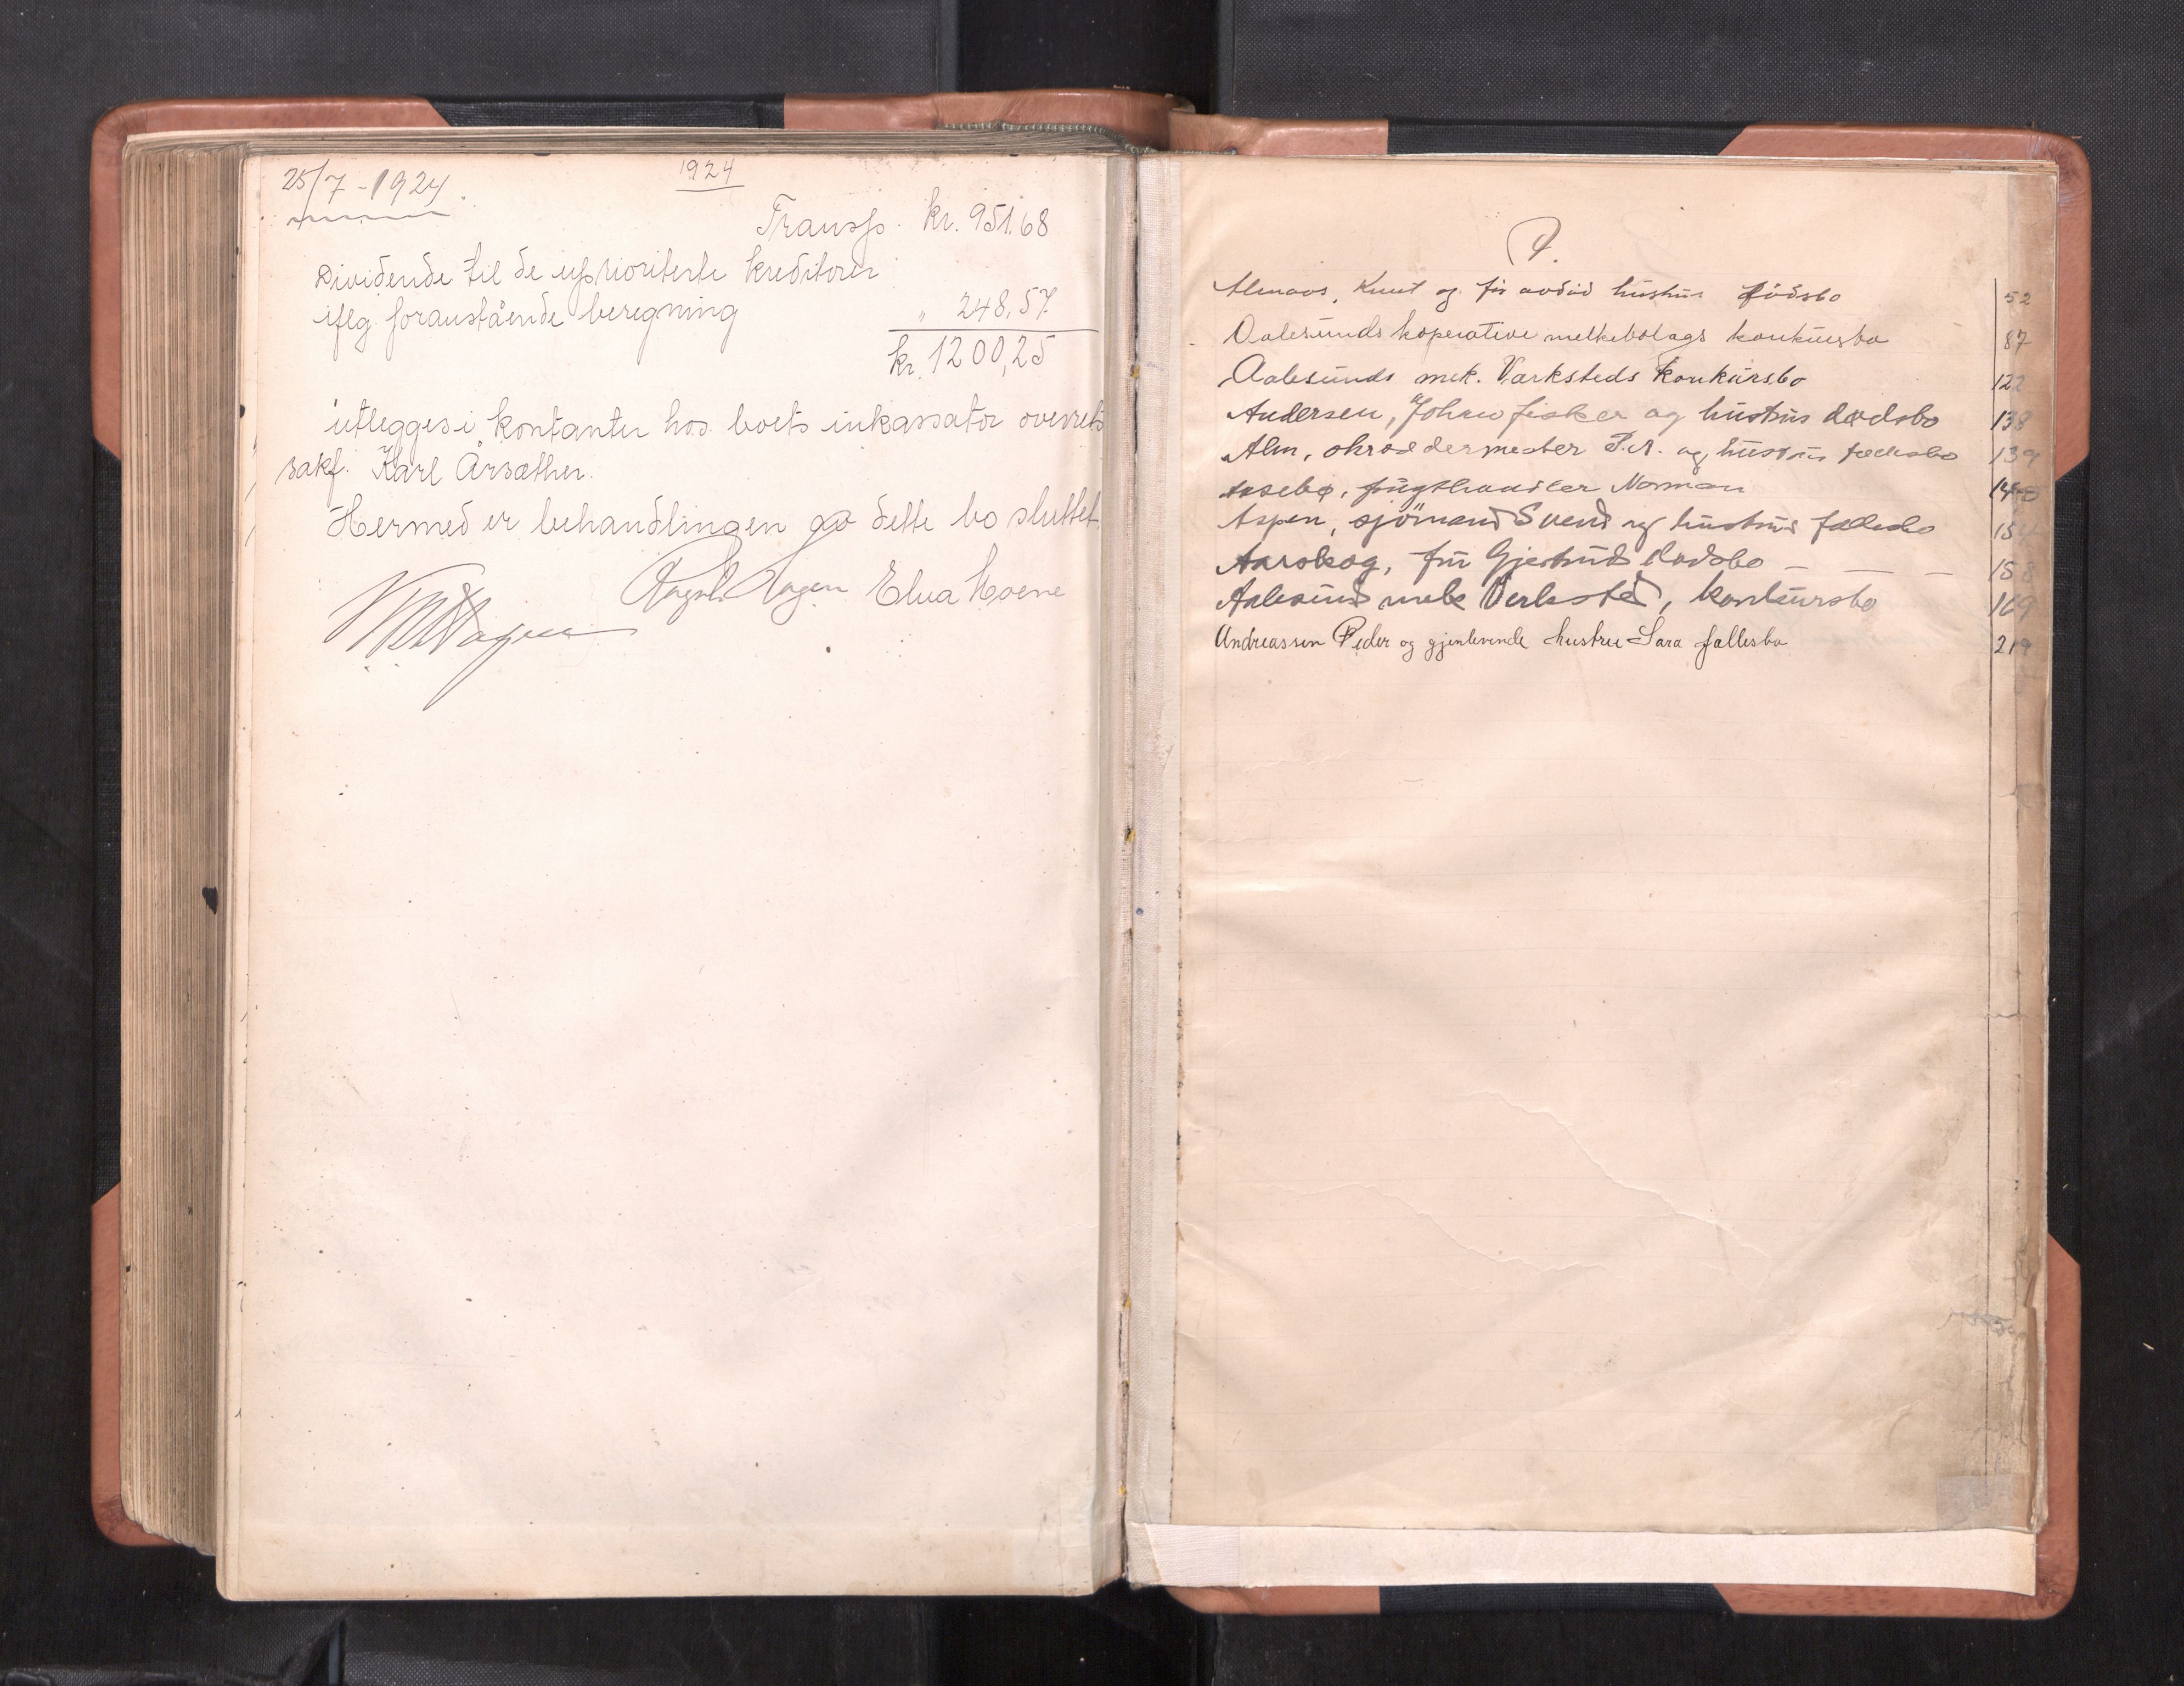 25/7 - 1924.
1924
Transp. kr. 951.68
Dividende til de uprioriterte kreditorer
iflg. foranstående beregning " 248,57
kr. 1200,25
utlegges i kontanter hos boets inkassator overrets
sakf. Karl Årsæther.
Hermed er behandlingen av dette bo sluttet
Elna Hoene
A.
Almaas, Knut og før avdød hustru dødsbo 52
Aalesunds koperative melkebolags konkursbo 87
Aalesunds mek. Værksteds konkursbo 122
Andersen, Johan fisker og hustrus dødsbo 138
Alm, skræddermester P.A. og hustrus fællesbo 139
Aasebø, Norman
Aspen, sjømand Svend og hustrus fællesbo 154
Aarskog, fru Gjertrud dødsbo — — — 158
Aalesund mek Verksted, konkursbo 169
Andreassen Peder og gjenlevende hustru Sara fællesbo 219